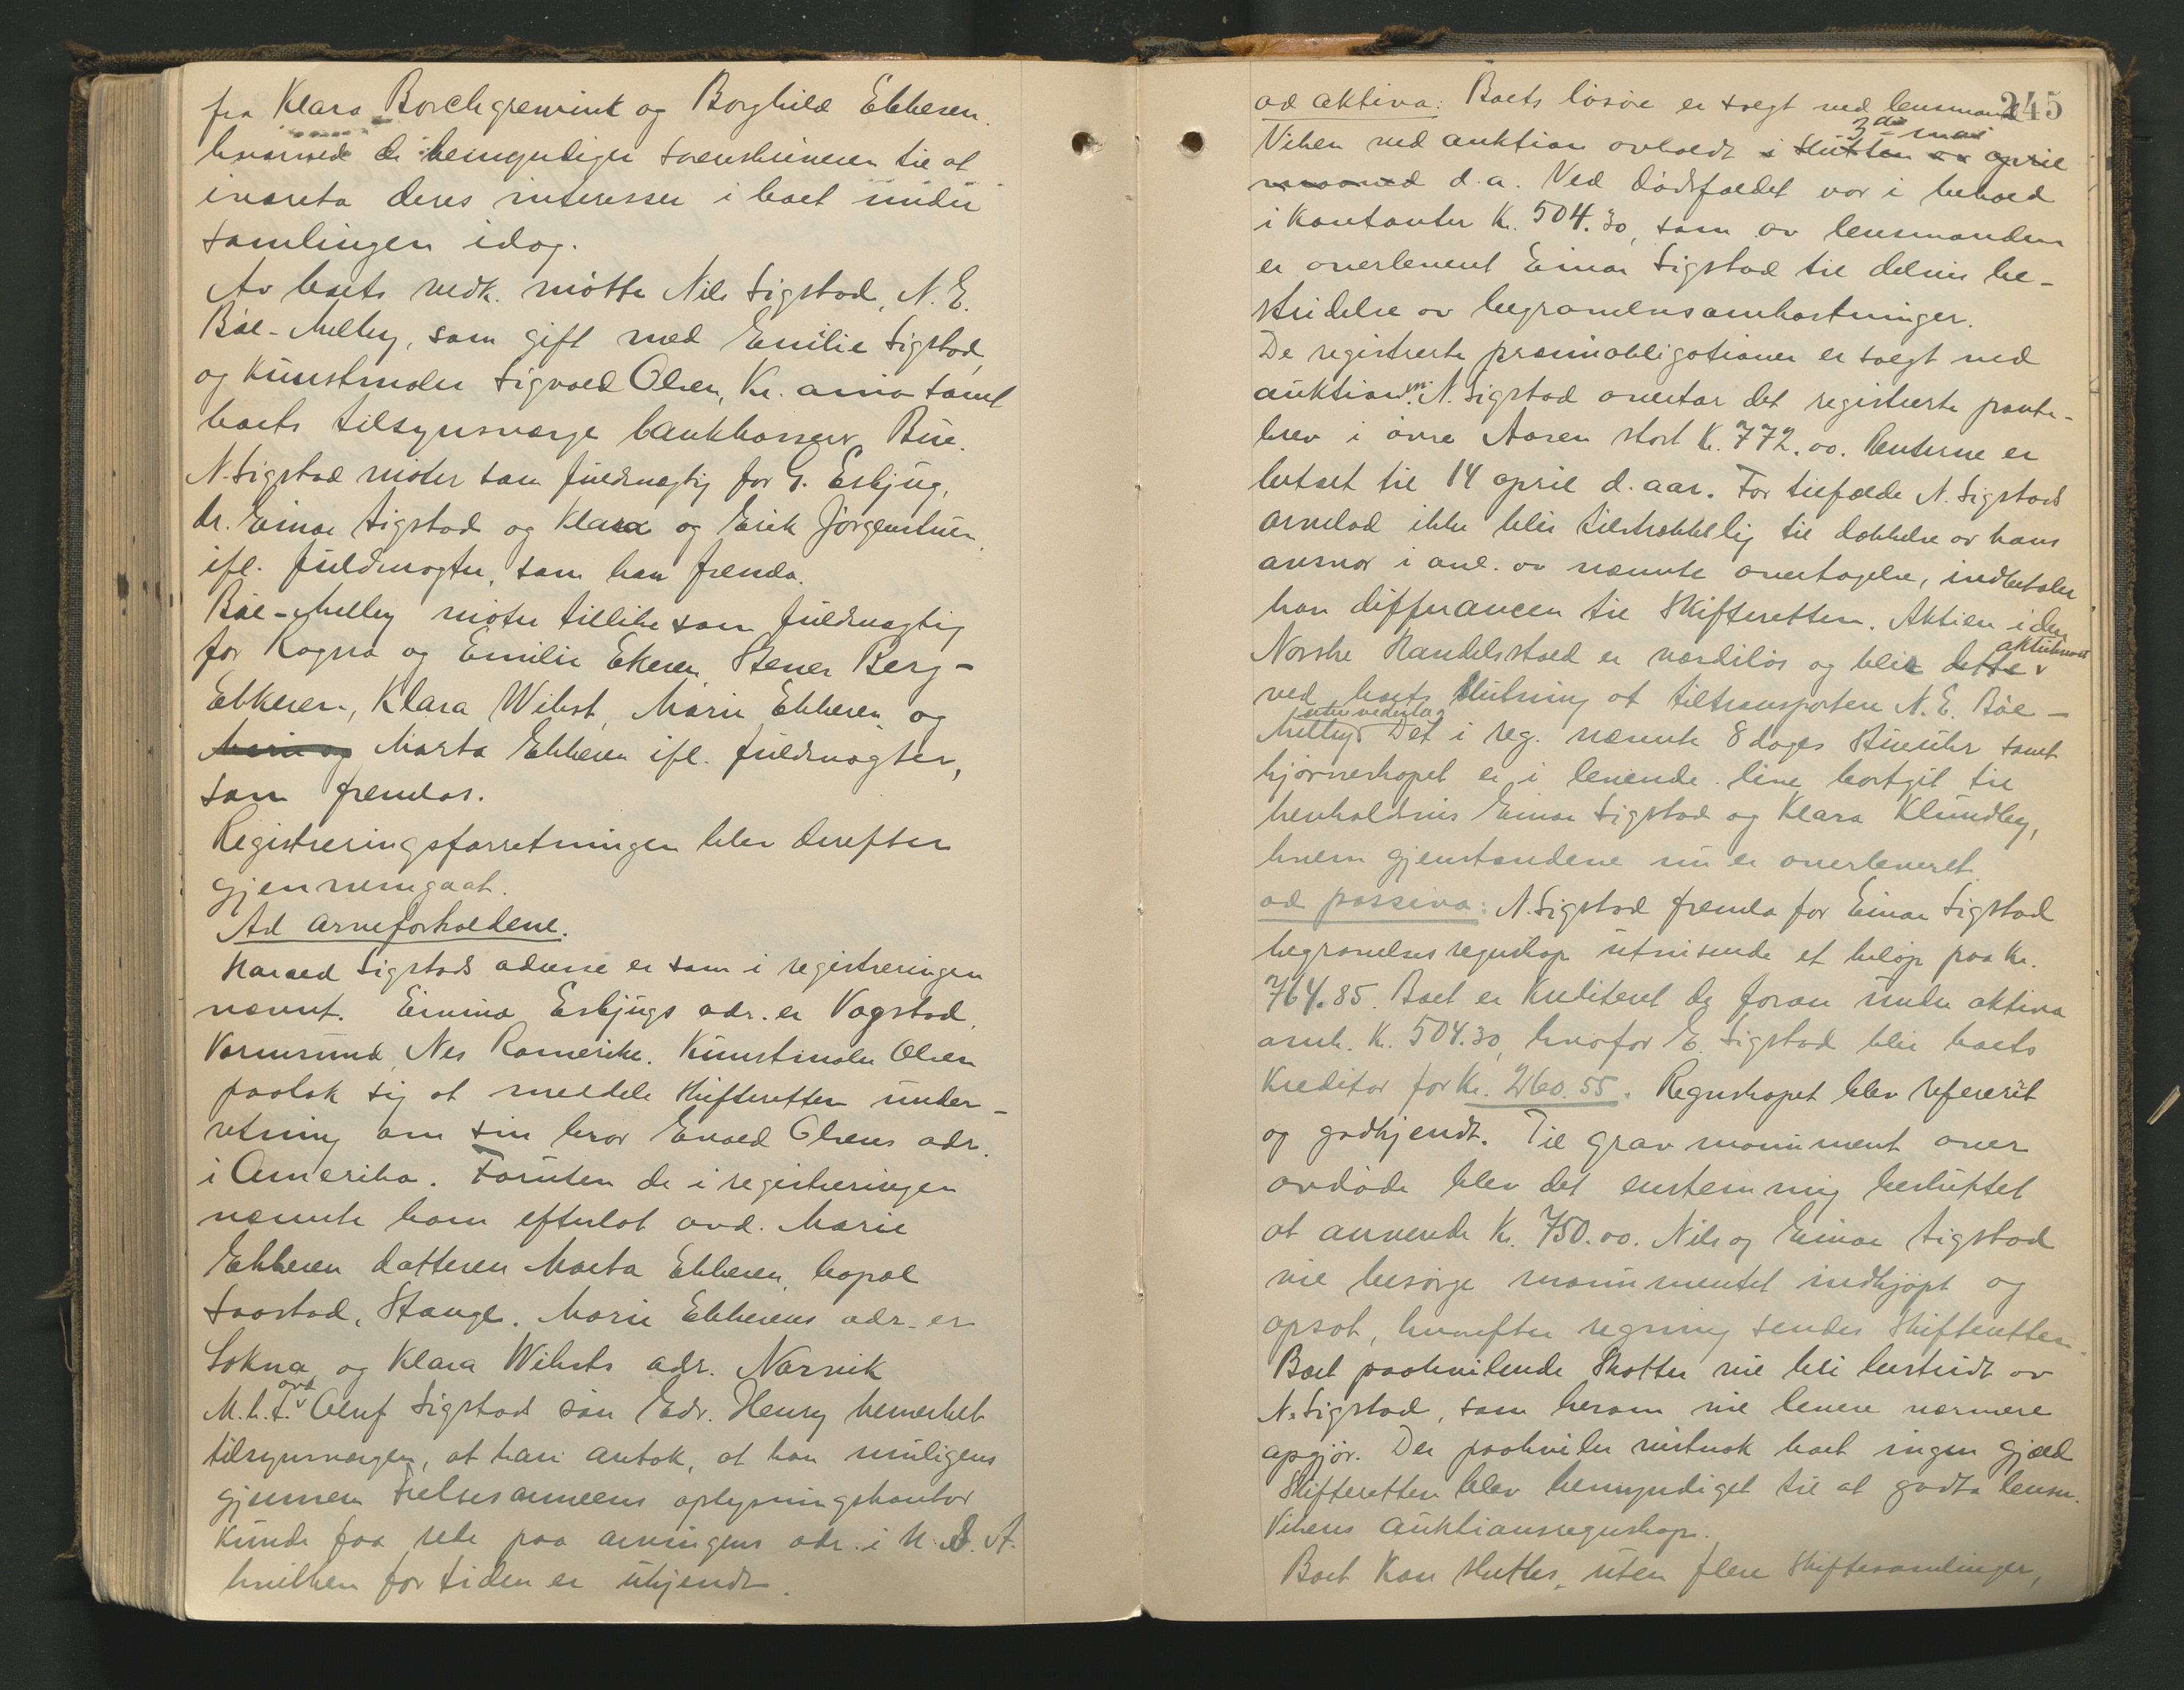 fra Klara Borchgrevink og Borghild Ekkeren.
hvorved de bemyndiger sorenskriveren til at
ivareta deres interesser i boet under
samlingen idag.
Av boets vedk. møtte Nils Sigstad, N. E.
Bøe-Melby, som gift med Emilie Sigstad,
og Kunstmaler Sigvald Olsen, Kr.ania samt
boets tilsynsværge bankkasserer Bue.
N. Sigstad møter som fuldmægtig for G. Esbjug,
dr. Einar Sigstad og Klara og Erik Jørgenstuen
ifl. fuldmagter, som han fremla.
Bøe-Melby møter tillike som fuldmægtig
for Ragna og Emilie Ekeren, Stener Berg-
Ekkeren, Klara Wibst, Marie Ekkeren og
Marie og Marta Ekkeren ifl. fuldmagter,
som fremlas.
Registreringsforretningen blev derefter
gjennemgaat.
Ad arveforholdene.
Harald Sigstads adresse er som i registreringen
nævnt. Emma Esbjugs adr. er Vagstad,
Vormsund, Nes Romerike. Kunstmaler Olsen
paatok sig at meddele Skifteretten under-
retning om sin bror Evald Olsens adr.
i Amerika. Foruten de i registreringen
nævnte barn efterlot avd. Marie
Ekkeren datteren Marta Ekkeren, bopæl
Saastad, Stange. Marie Ekkerens adr. er
Sokna og Klara Wibsts adr. Narvik
M.h.t. avd Oluf Sigstads søn Edv. Henry bemerket
tilsynsværgen, at han antok, at han muligens
gjennem Frelsesarmeens oplysningskontor
kunde faa rede paa arvingens adr. i U.S.A.
hvilken for tiden er ukjendt.
245
ad aktiva: Boets løsøre er solgt ved lensmand
3die mai
Viken ved auktion avholdt i slutten av april
maaned d.a. Ved dødsfaldet var i behold
i kontanter Kr. 504.30, som av lensmanden
er overlevert Einar Sigstad til delvis be-
stridelse av begravelsesomkostninger.
De registrerte præmieobligationer er solgt ved
auktionen. N. Sigstad overtar det registrerte pante-
brev i øvre Aasen stort K. 772.00. Renterne er
betalt til 14 april d. aar. For tilfælde N. Sigstads
arvelod ikke blir tilstrækkelig til dækkelse av hans
ansvar i anl. av nævnte overtagelse, indbetaler
han differancen til Skifteretten. Aktien i den
Norske Handelsstand er værdiløs og blir dette aktiebrev
ved boets slutning at tiltransportere N. E. Bøe-
Melby uten vederlag. Det i reg. nævnte 8 dages Stueuhr samt
hjørneskapet er i levende live bortgit til
henholdsvis Einar Sigstad og Klara Klundby,
hvem gjenstandene nu er overleveret.
ad passiva: N. Sigstad fremla for Einar Sigstad
begravelsesregnskap utvisende et beløp paa kr.
764.85. Boet er krediteret de foran under aktiva
omh. K. 504.30, hvorfor E. Sigstad blir boets
Kreditor for Kr. 260.55. Regnskapet blev refererit
og godkjendt. Til gravmonument over
avdøde blev det enstemmig besluttet
at anvende Kr. 750.00. Nils og Einar Sigstad
vil besørge monumentet indkjøpt og
opsat, hvorefter regning sendes Skifteretten.
Boet paahvilende Skatter vil bli bestridt av
N. Sigstad, som herom vil levere nærmere
opgjør. Der paahviler vistnok boet ingen gjæld
Skifteretten blev bemyndiget til at godta lensm.
Vikens auktionsregnskap.
Boet kan sluttes, uten flere Skiftesamlinger,